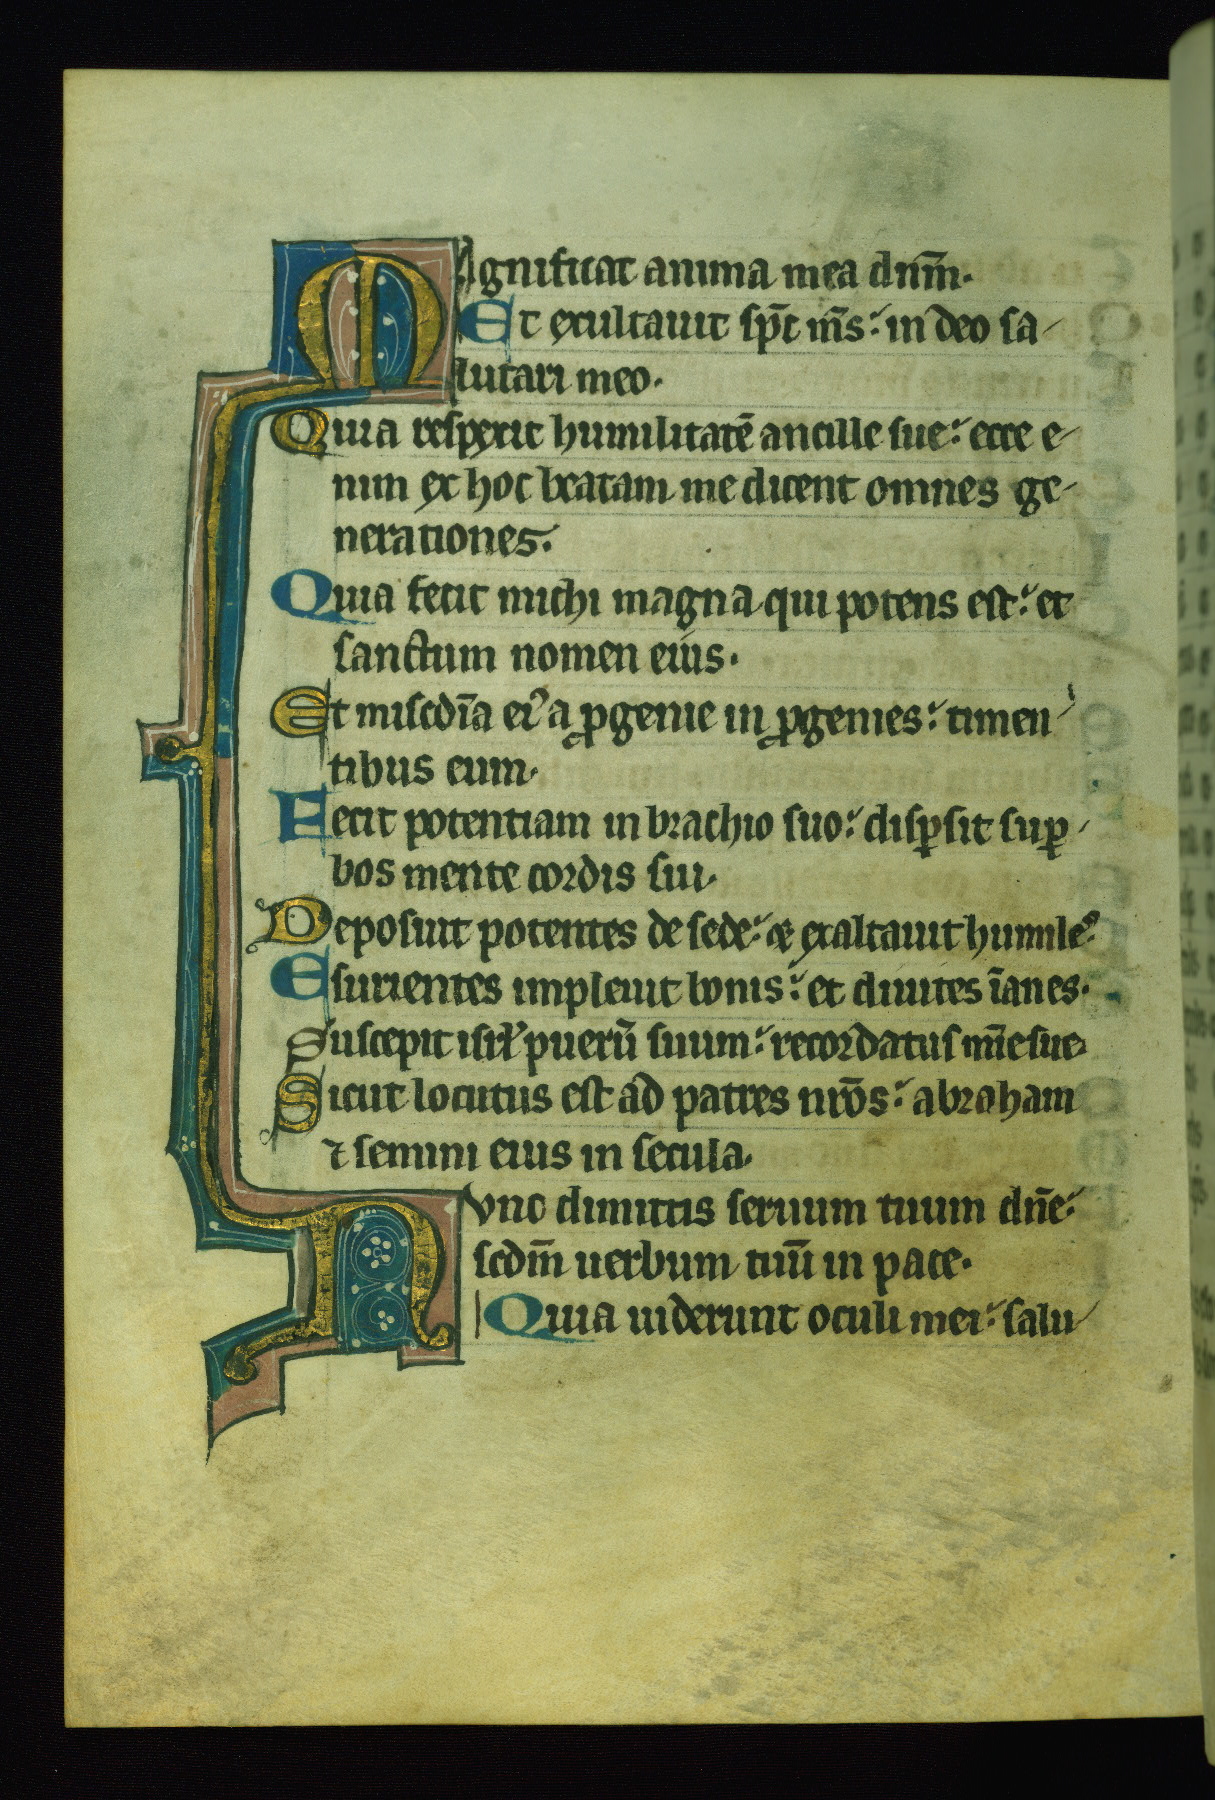 Magnificat anima mea dnm̄.
Et exultauit sp̄c m̄s: in deo sa-
lutari meo.
Quia respexit humilitatē ancille sue: ecce e-
nim ex hoc beatam me dicent omnes ge-
nerationes.
Quia fecit michi magna qui potens est: et
sanctum nomen eius.
Et miscdīa eiꝰ a ꝓgenie in ꝓgenies: timen-
tibus eum.
Fecit potentiam in brachio suo: disꝑsit suꝑ-
bos mente cordis sui.
Deposuit potentes de sede: et exaltauit humiles.
Esurientes impleuit bonis: et diuites īanes.
Suscepit isrl̄ puerū suum: recordatus mīe sue.
Sicut locutus est ad patres nrōs: abraham
⁊ semini eius in secula.
Nunc dimittis seruum tuum dn̄e:
scdm̄ uerbum tuū in pace.
Quia uiderunt oculi mei: salu-